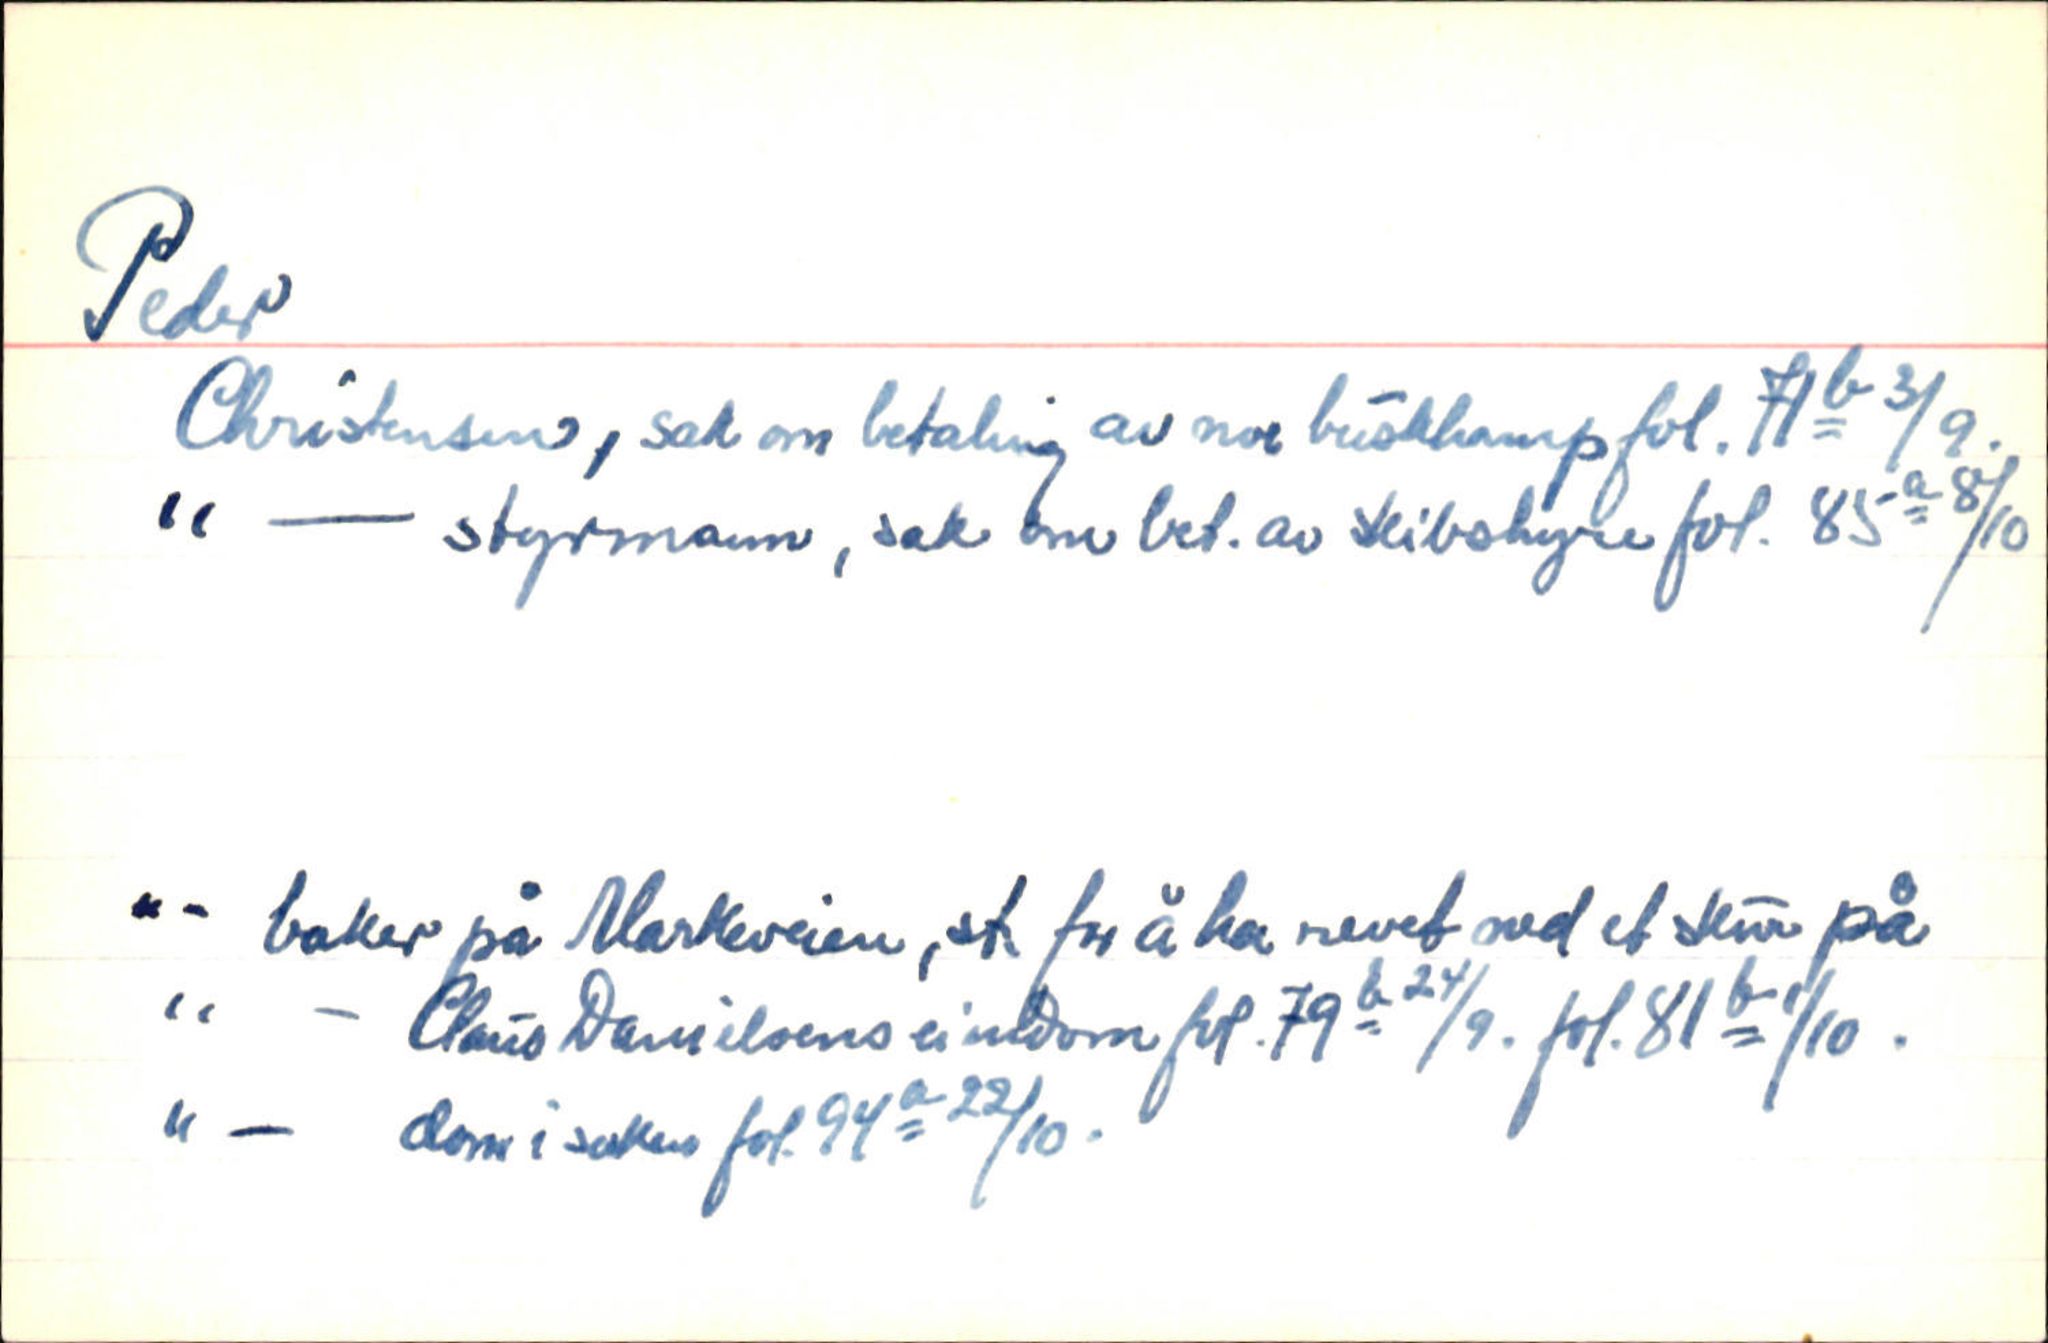 Peder
Christensen, sak om betaling av noe bøskhamp fol. 71b 3/9.
" — styrmann, sak om bet. av skibshyre fol. 85a 8/10
" - baker på Markeveien, st. for å ha revet ned et skur på
" - Claus Danielsens eiendom fol. 79b 24/9. fol. 81b 1/10.
" — dom i saken fol. 94a 22/10.